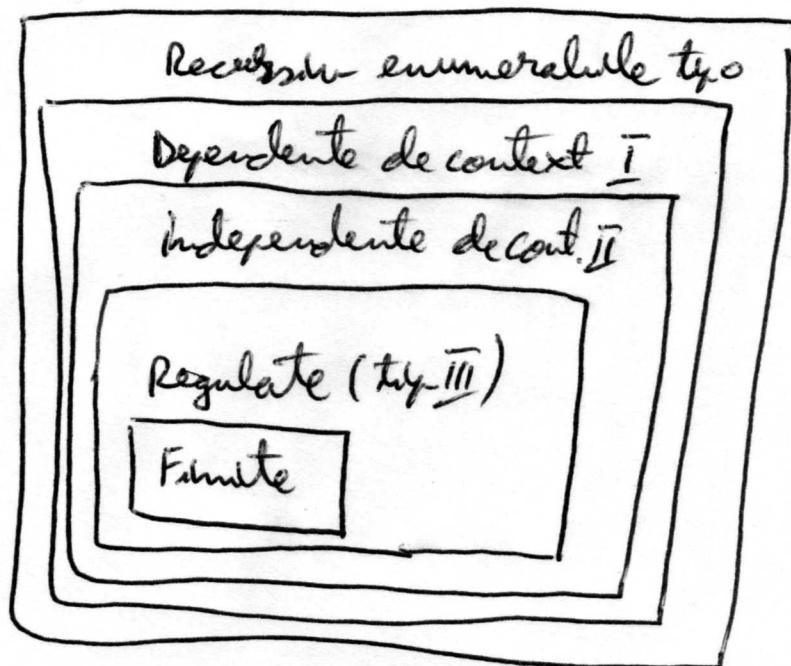 Recursiv enumerabile tip 0
Dependente de context I
independente de cont. II
Regulate (tip III)
Finite